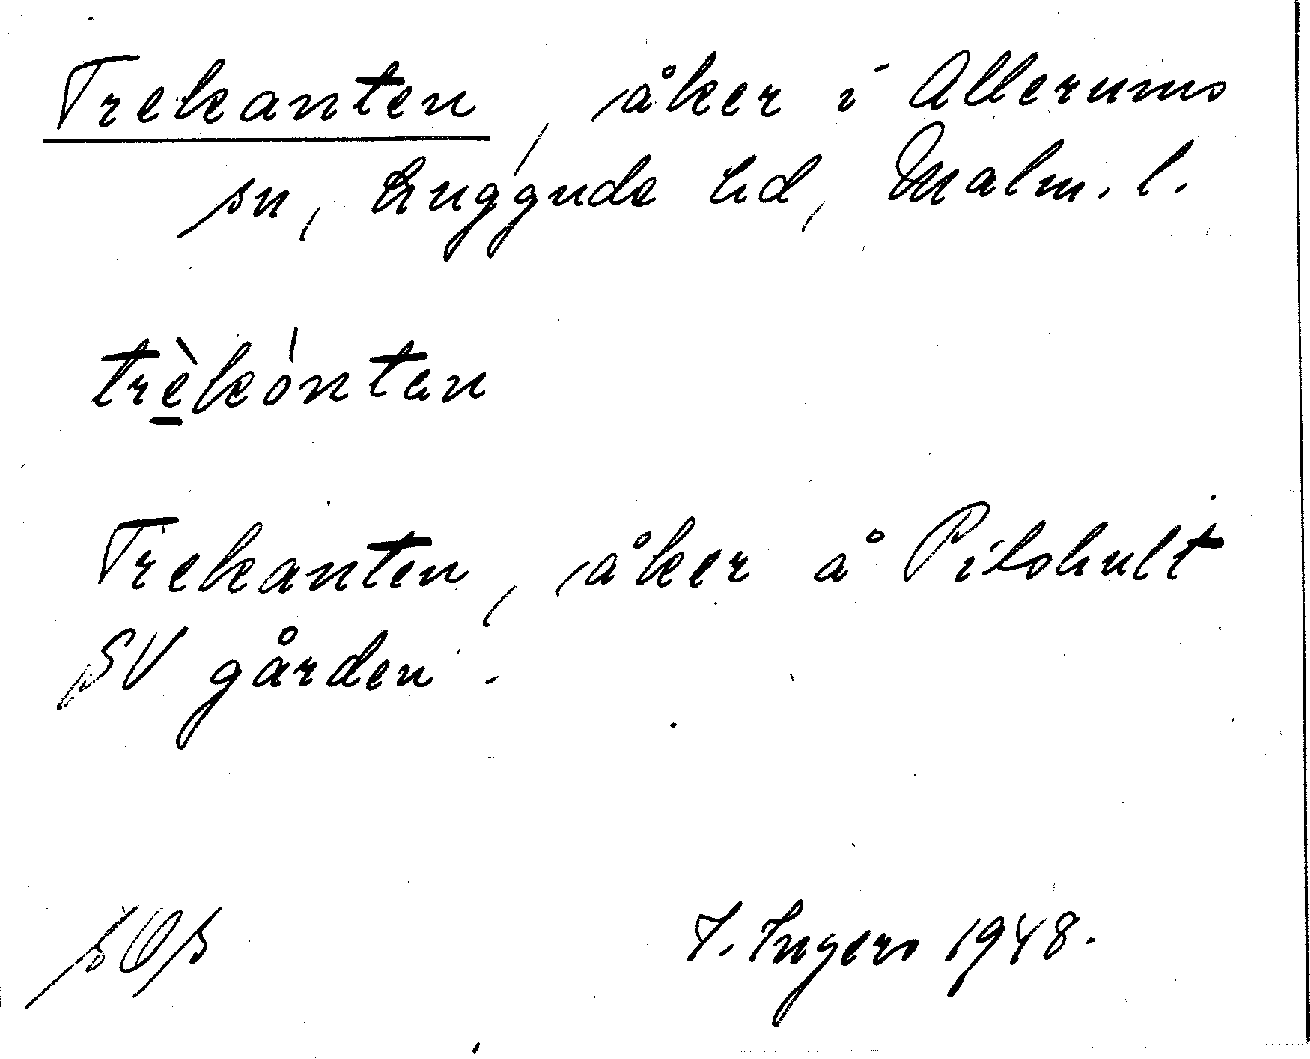 Trekanten, åker i Allerums
sn, Luggude hd, Malm. l.
trèkántan
Trekanten, åker å Pilshult
SV gården.
I. Ingers 1948.